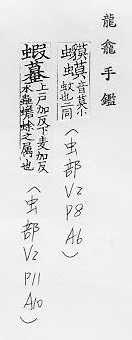 龍龕手鑑
蟆蟆 音莫小
蚊也二同
(虫部
V2
P8
A6)
蝦蟇 上戶加反下麦加反
水蟲
之属也
(虫部
V2
P11
A10)